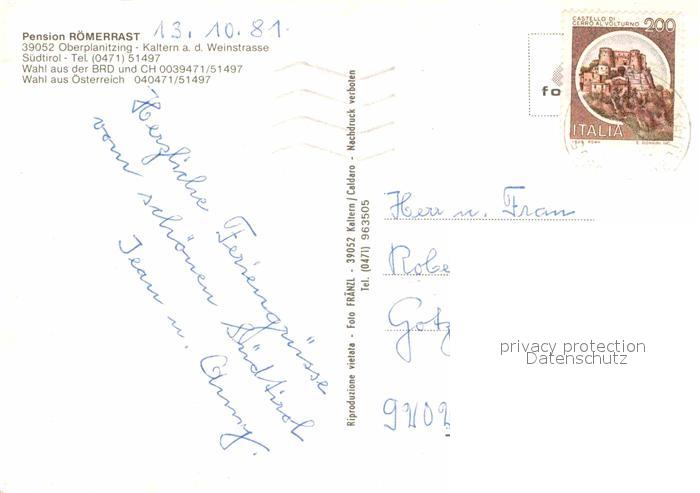 Pension RÖMERRAST
39052 Oberplanitzing - Kaltern a. d. Weinstrasse
Südtirol - Tel. (0471) 51497
Wahl aus der BRD und CH 0039471/51497
Wahl aus Österreich 040471/51497
13. 10. 81.
Herzliche Feriengrüsse
vom schönen Südtirol
Jean u.
Riproduzione vietata - Foto FRÄNZL - 39052 Kaltern / Caldaro - Nachdruck verboten
Tel. (0471) 963505
fo
CASTELLO DI
CERRO AL VOLTURNO
200
ITALIA
Herr u. Frau
Robe
Gotz
9202
privacy protection
Datenschutz